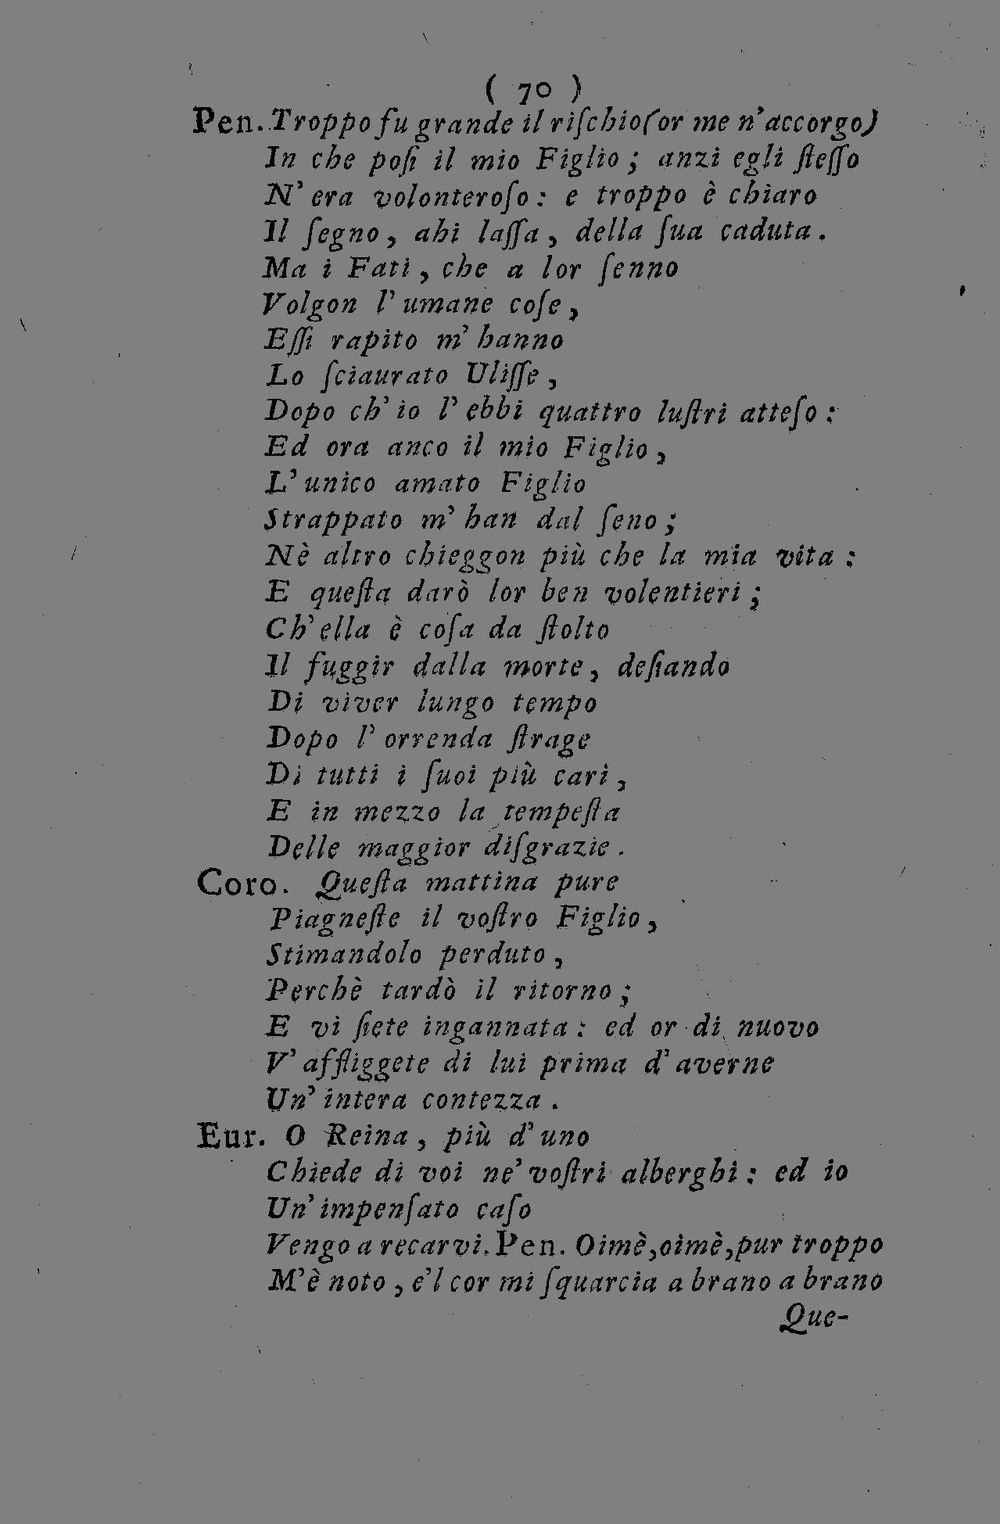 ( 70 )
Pen. Troppo fu grande il riſchio (or me n'accorgo)
In che poſi il mio Figlio; anzi egli ſteſſo
N'era volonteroſo: e troppo è chiaro
Il ſegno, ahi laſſa, della ſua caduta.
Ma i Fati, che a lor ſenno
Volgon l'umane coſe,
Eſſi rapito m'hanno
Lo ſciaurato Uliſſe,
Dopo ch'io l'ebbi quattro luſtri atteſo:
Ed ora anco il mio Figlio,
L'unico amato Figlio
Strappato m'han dal ſeno;
Nè altro chieggon più che la mia vita:
E queſta darò lor ben volentieri;
Ch'ella è coſa da ſtolto
Il fuggir dalla morte, deſiando
Di viver lungo tempo
Dopo l'orrenda ſtrage
Di tutti i ſuoi più cari,
E in mezzo la tempeſta
Delle maggior diſgrazie.
Coro. Queſta mattina pure
Piagneſte il voſtro Figlio,
Stimandolo perduto,
Perchè tardò il ritorno;
E vi ſiete ingannata: ed or di nuovo
V'affliggete di lui prima d'averne
Un'intera contezza.
Eur. O Reina, più d'uno
Chiede di voi ne'voſtri alberghi: ed io
Un'impenſato caſo
Vengo a recarvi. Pen. Oimè, oimè, pur troppo
M'è noto, e'l cor mi ſquarcia a brano a brano
Que-